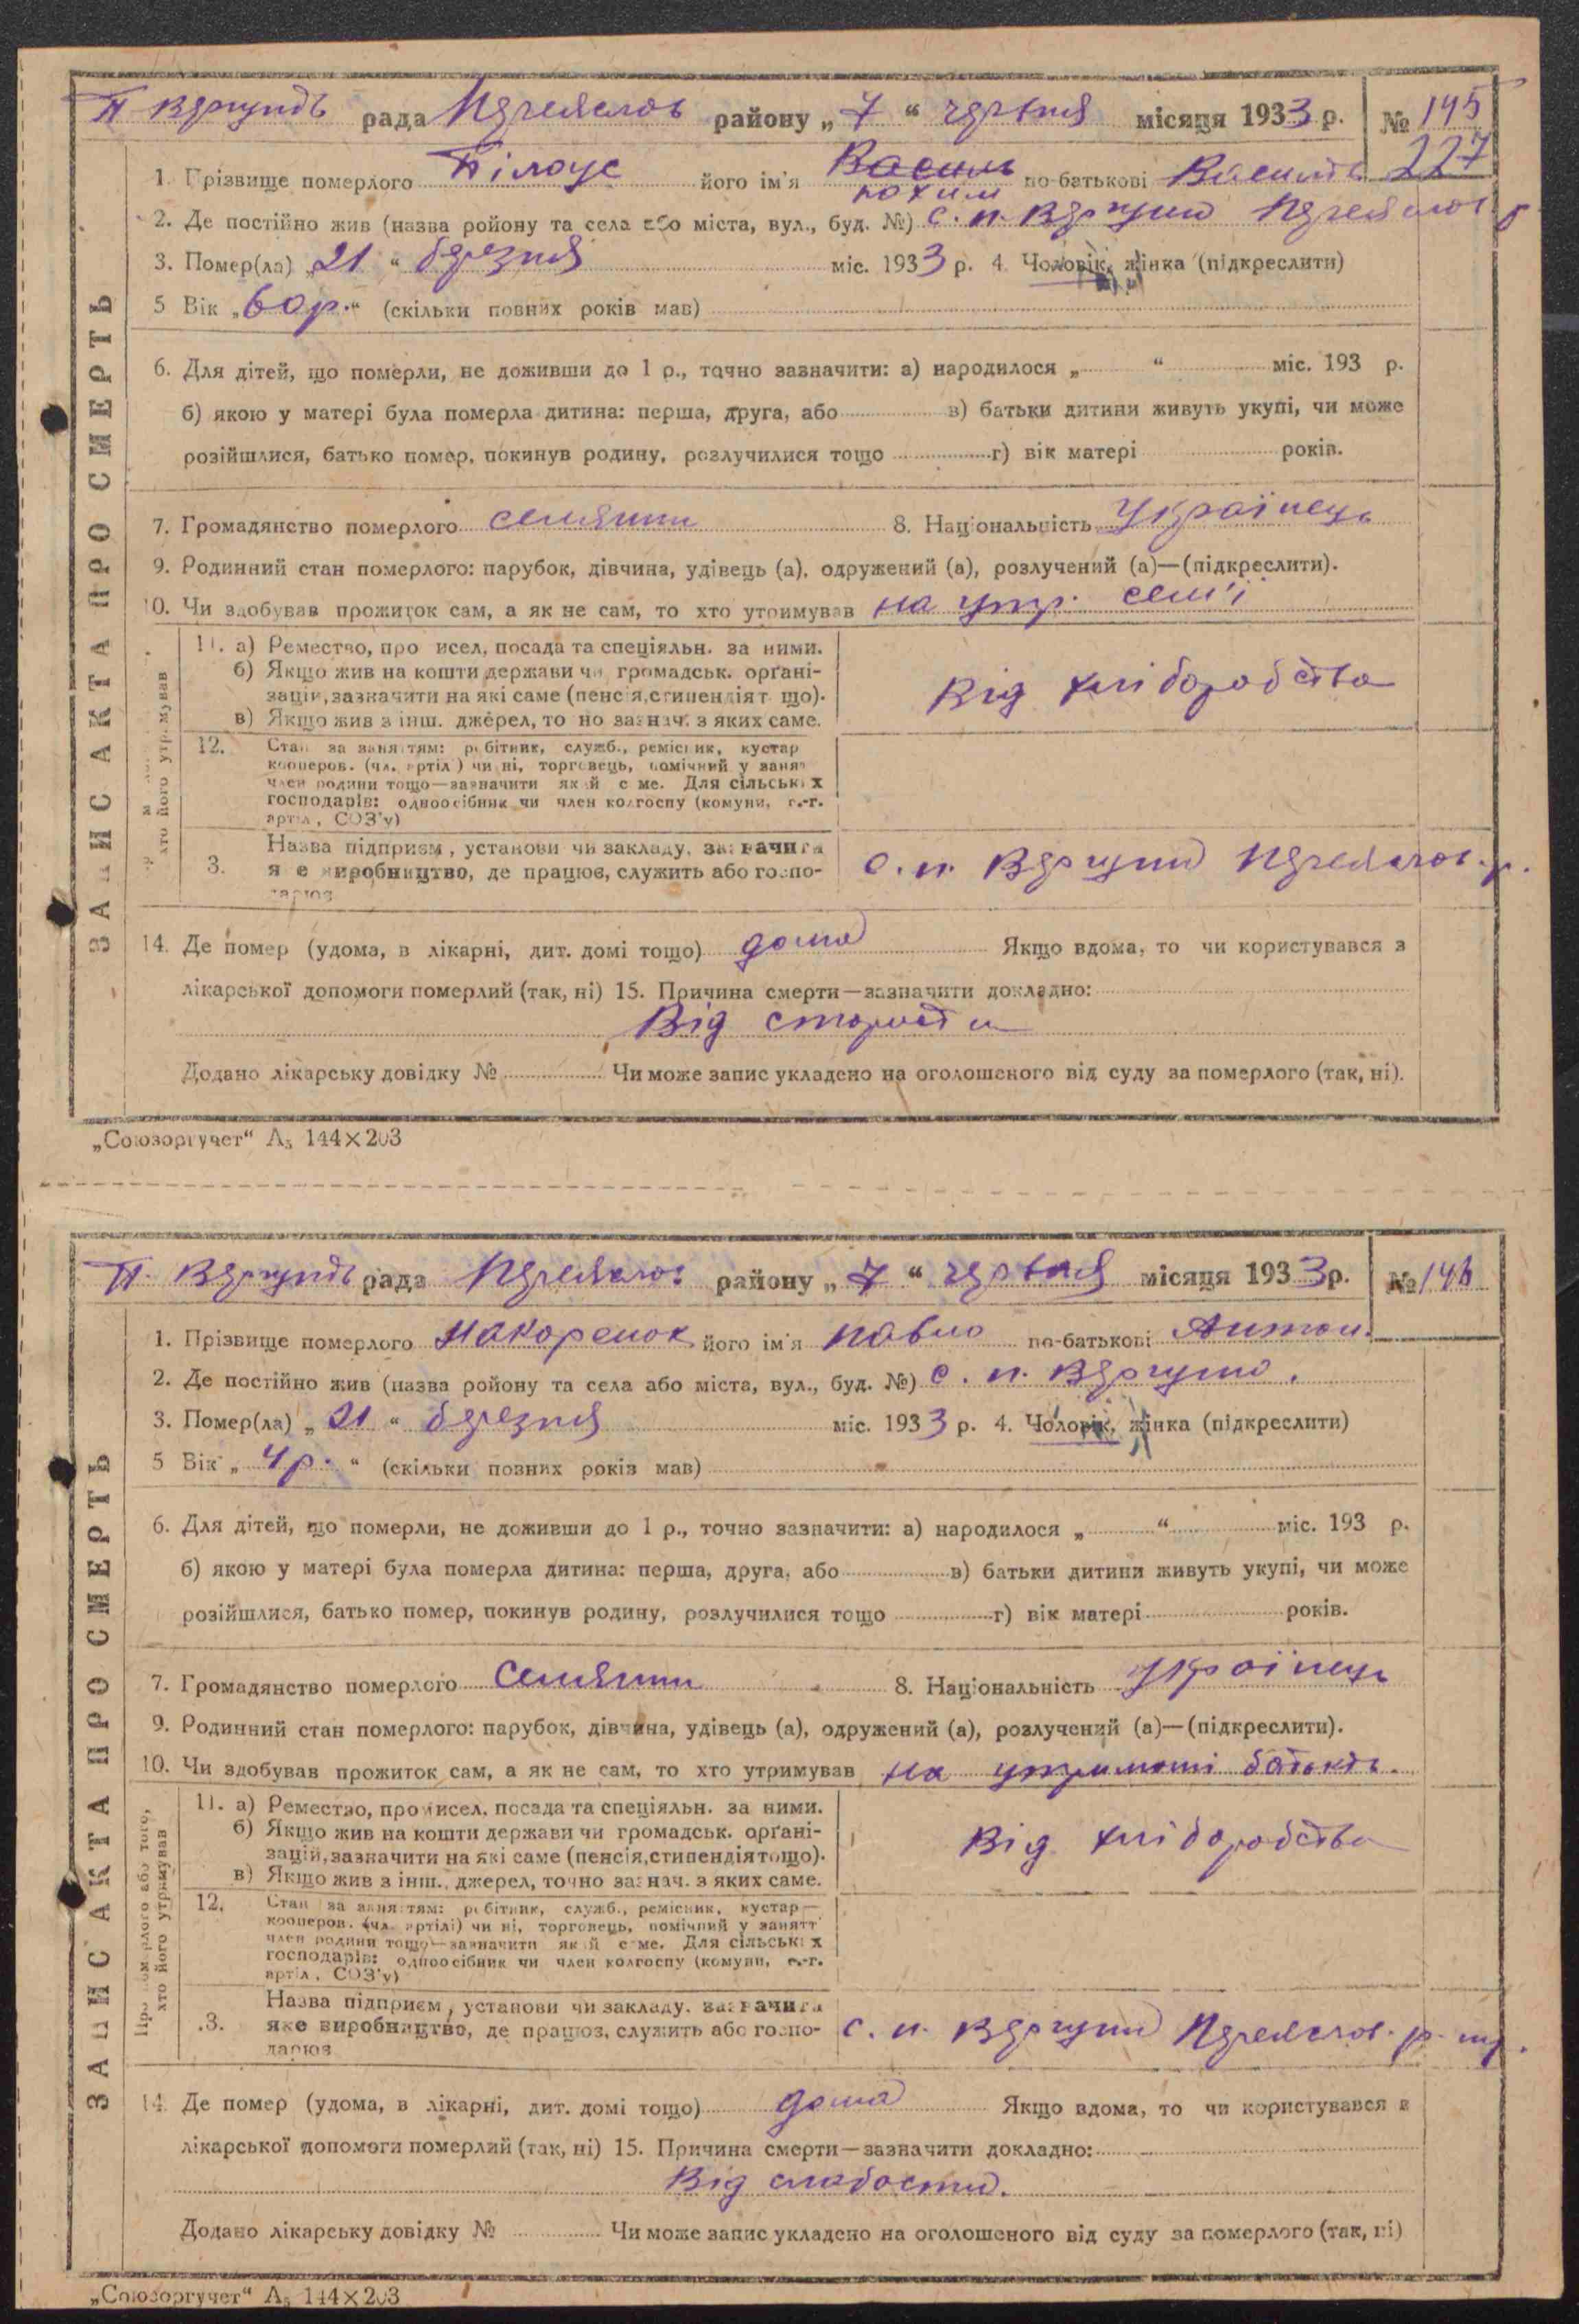 П Вергунів рада Переяслов району „ 7 “ червня місяця 1933 р. № 145
227
1. Прізвище померлого Білоус його ім'я Василь по-батькові Василів
Яохим
2. Де постійно жив (назва ройону та села або міста, вул., буд. №) с. п. Вергуни Переяслов. р
3. Помер(ла) „ 21 “ березня міс. 1933 р. 4. Чоловік, жінка (підкреслити)
5 Вік „ 60 р. “ (скільки повних років мав)
6. Для дітей, що померли, не доживши до 1 р., точно зазначити: а) народилося „ “ міс. 193 р.
б) якою у матері була померла дитина: перша, друга, або в) батьки дитини живуть укупі, чи може
розійшлися, батько помер, покинув родину, розлучилися тощо г) вік матері років.
7. Громадянство померлого селянин 8. Національність Українець
9. Родинний стан померлого: парубок, дівчина, удівець (а), одружений (а), розлучений (а)—(підкреслити).
10. Чи здобував прожиток сам, а як не сам, то хто утримував на утр. сем'ї
11. а) Ремество, про исел, посада та спеціяльн. за ними.
б) Якщо жив на кошти держави чи громадськ. орґані-
зації, зазначити на які саме (пенсія, стипендія т що).
в) Якщо жив з інш. джерел, то но зазнач. з яких саме.
Від хліборобства
12. Стан за заняттям: робітник, служб., ремісник, кустар
кооперов. (чл. артілі) чи ні, торговець, помічний у занят
член родини тощо—зазначити який саме. Для сільських
господарів: одноосібник чи член колгоспу (комуни, с.-г.
артіл, СОЗ'у)
3. Назва підприєм, установи чи закладу, зазначити
яке виробництво, де працює, служить або госпо-
дарює
с. п. Вергуни Переяслов. р.
14. Де помер (удома, в лікарні, дит. домі тощо) дома Якщо вдома, то чи користувався з
лікарської допомоги померлий (так, ні) 15. Причина смерти—зазначити докладно:
Від старости
Додано лікарську довідку № Чи може запис укладено на оголошеного від суду за померлого (так, ні).
ЗАПИС АКТА ПРО СМЕРТЬ
хто його утримував
„Союзоргучет“ А₅ 144×203
П. Вергунів рада Переяслов району „ 7 “ червня місяця 1933 р. № 146
1. Прізвище померлого Макоренок його ім'я Павло по-батькові Антон.
2. Де постійно жив (назва ройону та села або міста, вул., буд. №) с. п. Вергуни.
3. Помер(ла) „ 21 “ березня міс. 1933 р. 4. Чоловік, жінка (підкреслити)
5 Вік „ 4 р. “ (скільки повних років мав)
6. Для дітей, що померли, не доживши до 1 р., точно зазначити: а) народилося „ “ міс. 193 р.
б) якою у матері була померла дитина: перша, друга, або в) батьки дитини живуть укупі, чи може
розійшлися, батько помер, покинув родину, розлучилися тощо г) вік матері років.
7. Громадянство померлого Селянин 8. Національність Українець
9. Родинний стан померлого: парубок, дівчина, удівець (а), одружений (а), розлучений (а)—(підкреслити).
10. Чи здобував прожиток сам, а як не сам, то хто утримував на утримані батьків.
11. а) Ремество, промисел, посада та спеціяльн. за ними.
б) Якщо жив на кошти держави чи громадськ. орґані-
зацій, зазначити на які саме (пенсія, стипендія тощо).
в) Якщо жив з інш. джерел, точно зазнач. з яких саме.
Від хліборобства
12. Стан за заняттям: робітник, служб., ремісник, кустар—
кооперов. (чл. артілі) чи ні, торговець, помічний у занятт
член родини тощо—зазначити який саме. Для сільських
господарів: одноосібник чи член колгоспу (комуни, с.-г.
артіл, СОЗ'у)
.3. Назва підприєм, установи чи закладу, зазначити
яке виробництво, де працює, служить або госпо-
дарює
с. п. Вергуни Переяслов. р.
14. Де помер (удома, в лікарні, дит. домі тощо) дома Якщо вдома, то чи користувався з
лікарської допомоги померлий (так, ні) 15. Причина смерти—зазначити докладно:
Від слабости.
Додано лікарську довідку № Чи може запис укладено на оголошеного від суду за померлого (так, ні)
ЗАПИС АКТА ПРО СМЕРТЬ
Про померлого або того,
хто його утримував
„Союзоргучет“ А₅ 144×203